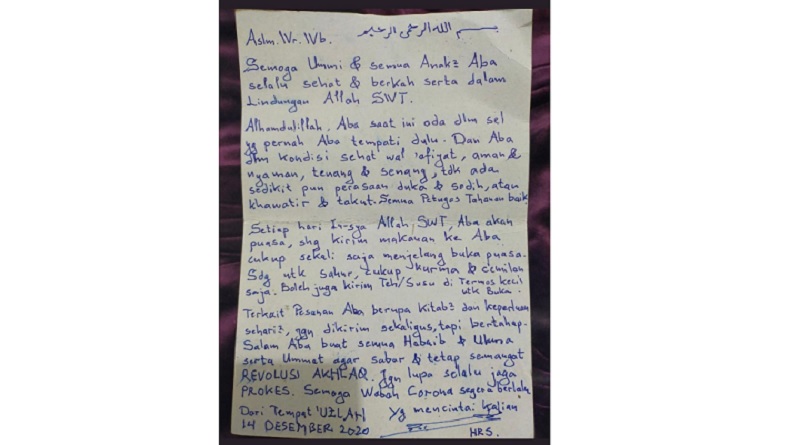 بسم الله الرحمن الرحيم
Aslm. Wr. Wb.
Semoga Ummi & semua Anak2 Aba
selalu sehat & berkah serta dalam
Lindungan Allah SWT.
Alhamdulillah, Aba saat ini ada dlm sel
yg pernah Aba tempati dulu. Dan Aba
dlm kondisi sehat wal 'afiyat, aman &
nyaman, tenang & senang, tdk ada
sedikit pun perasaan duka & sedih, atau
khawatir & takut. Semua Petugas Tahanan baik
Setiap hari In-sya Allah SWT, Aba akan
puasa, shg kirim makanan ke Aba
cukup sekali saja menjelang buka puasa.
Sdg utk sahur, cukup kurma & cemilan
saja. Boleh juga kirim Teh/Susu di Termos kecil
utk Buka.
Terkait Pesanan Aba berupa kitab2 dan keperluan
sehari2, jgn dikirim sekaligus, tapi bertahap.
Salam Aba buat semua Habaib & Ulama
serta Ummat agar sabar & tetap semangat
REVOLUSI AKHLAQ. Jgn lupa selalu jaga
PROKES. Semoga Wabah Corona segera berlalu
Dari Tempat 'UZLAH Yg mencintai Kalian
14 DESEMBER 2020 HRS.